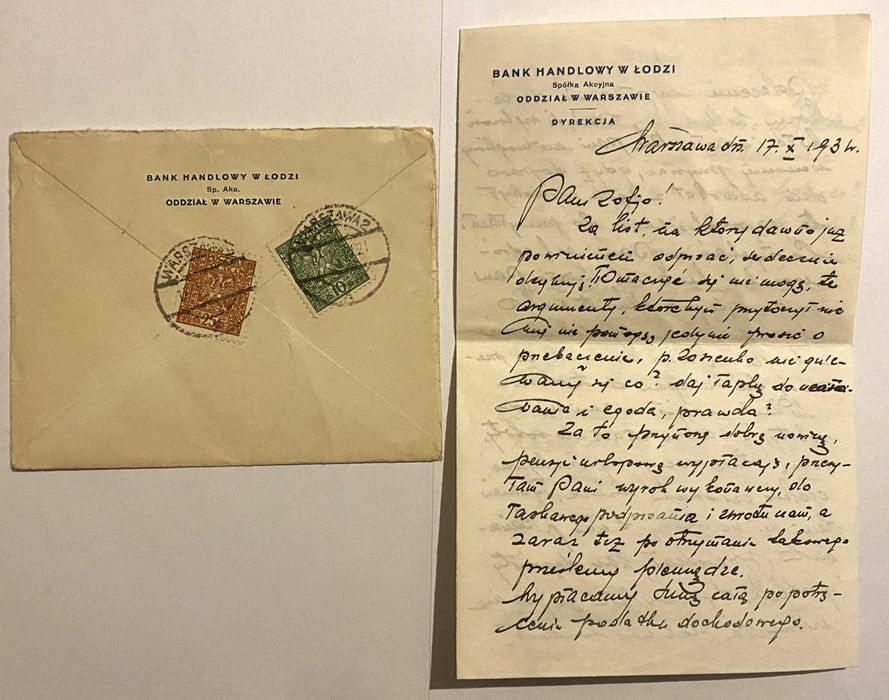 BANK HANDLOWY W ŁODZI
Sp. Akc.
ODDZIAŁ W WARSZAWIE
WARSZAWA 2
WARSZAWA 2
25
10
BANK HANDLOWY W ŁODZI
Spółka Akcyjna
ODDZIAŁ W WARSZAWIE
DYREKCJA
Warszawa dn. 17. X 193 r.
Pani Zofjo!
Za list, na który dawno już
powinienem odpisać, serdecznie
dziękuję. Tłomaczyć się nie mogę, że
argumenty, którebym przytoczył nic
nie pomogą jedynie prosić o
przebaczenie, p. Zosieńko nie gnie-
wamy się co? daj łapkę do
wania i zgoda, prawda?
Za to przynoszę dobrą nowinę,
pensję urlopową wypłacają, przesy-
łam Pani wyrok wykonawczy, do
łaskawego podpisania i zwrotu nam, a
zaraz też po otrzymaniu takowego
prześlemy pieniądze.
Wypłacamy całą po potrą-
ceniu podatku dochodowego.